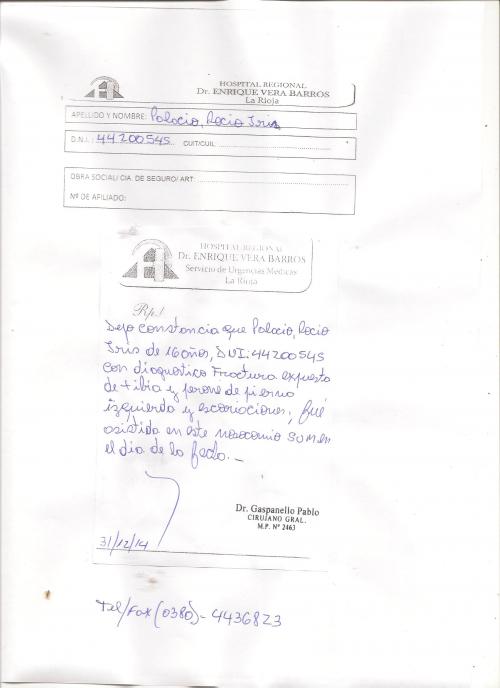 HOSPITAL REGIONAL
Dr. ENRIQUE VERA BARROS
La Rioja
APELLIDO Y NOMBRE: Palacio, Rocio Iris
D.N.I.: 44200545 CUIT/CUIL:
OBRA SOCIAL/ CIA. DE SEGURO/ ART:
Nº DE AFILIADO:
HOSPITAL REGIONAL
Dr. ENRIQUE VERA BARROS
Servicio de Urgencias Médicas
La Rioja
Rp./
Dejo constancia que Palacio, Rocio
Iris de 16 años, DNI: 44200545
con diagnostico Fractura expuesta
de tibia y perone de pierna
izquierda y escoriaciones, fué
asistida en este nosocomio SUM en
el dia de la fecha. _
Dr. Gaspanello Pablo
CIRUJANO GRAL.
M.P. Nº 2463
31/12/14
Tel/Fax (0380) - 4436823